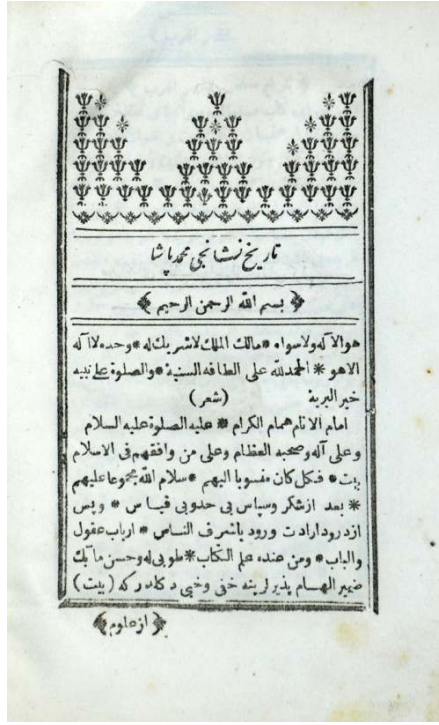 تاريخ نشانجى محمد پاشا
بسم الله الرحمن الرحيم
هو الاٰ له ولا سواه * مالك الملك لا شريك له * وحده لا اٰ له
الا هو * الحمد لله على الطافه السنية * والصلوة على نبيه
خير البرية (شعر)
امام الانام همام الكرام * عليه الصلوة عليه السلام
وعلى آله وصحبه العظام وعلى من وافقهم فى الاسلام
بيت * فكل كان منسوبا اليهم * سلام الله مجموعا عليهم
* بعد از شكر وسپاس بى حدوبى قياس * وپس
از درود ارادت ورود باشرف الناس * ارباب عقول
والباب * ومن عنده علم الكتاب * طوبى له وحسن مآبك
ضمير الهام پذير لرينه خفى وخبى دكلدر كه (بيت)
(از علوم)